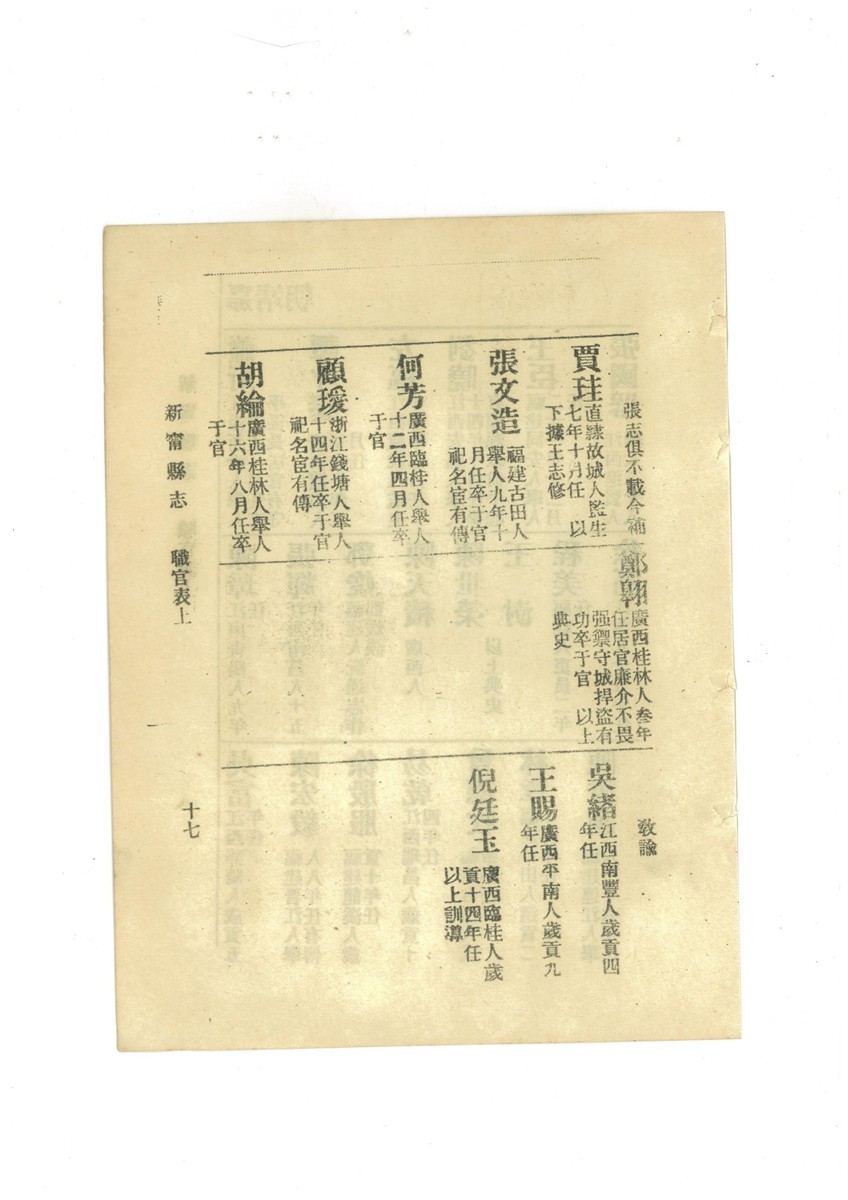 張志俱不載今補
賈珪
直隸故城人監生
七年十月任　以
下據王志修
張文造
福建古田人
舉人九年十
月任卒于官
祀名宦有傳
何芳
廣西臨桂人舉人
十二年四月任卒
于官
顧瑗
浙江錢塘人舉人
十四年任卒于官
祀名宦有傳
胡綸
廣西桂林人舉人
十六年八月任卒
于官
鄭翱
廣西桂林人叁年
任居官廉介不畏
强禦守城捍盜有
功卒于官　以上
典史
敎諭
吳緒
江西南豐人歲貢四
年任
王賜
廣西平南人歲貢九
年任
倪廷玉
廣西臨桂人歲
貢十四年任
以上訓導
新甯縣志　職官表上　十七